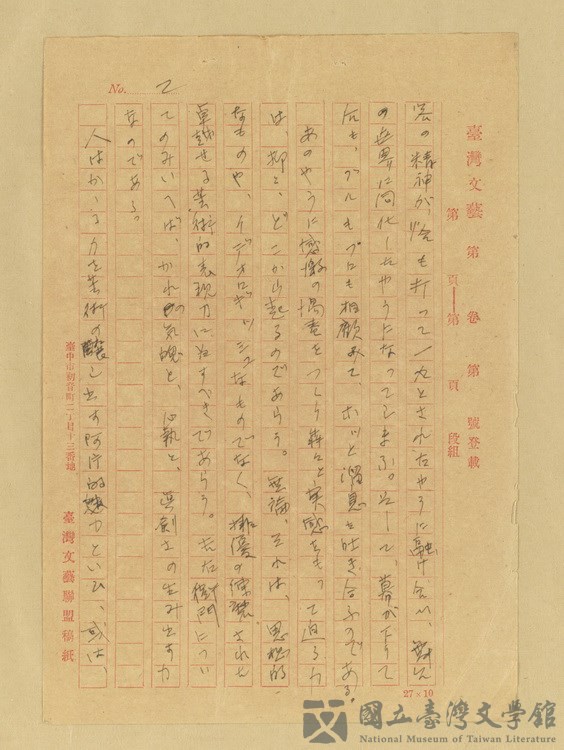 No. 2
臺灣文藝 第 卷 第 號登載
第 頁——第 頁 段組
客の精神が、恰も打って一丸とされたやうに融け合ひ、
の世界に同化したやうになってしまふ。そして、幕が下りて
も、ブルもプロも相顧みて、ホッと溜息を吐き合ふのである。
あのやうに感激の場面をつくり、実感をもって迫る力
は、抑々、どこから起るのであらう。無論、それは、思想的
なものや、イデオロギッシュなものでなく、俳優の洗練された
卓越せる芸術的表現力に帰すべきであらう。左衛門につい
てのみいへば、かれの気魄と、熱と、創との生み出す力
なのである。
人はかゝる力を芸術の醸し出す阿片的魅力といひ、或は、
臺中市初音町二丁目十三番地
臺灣文藝聯盟稿紙
27×10
國立臺灣文學館
National Museum of Taiwan Literature